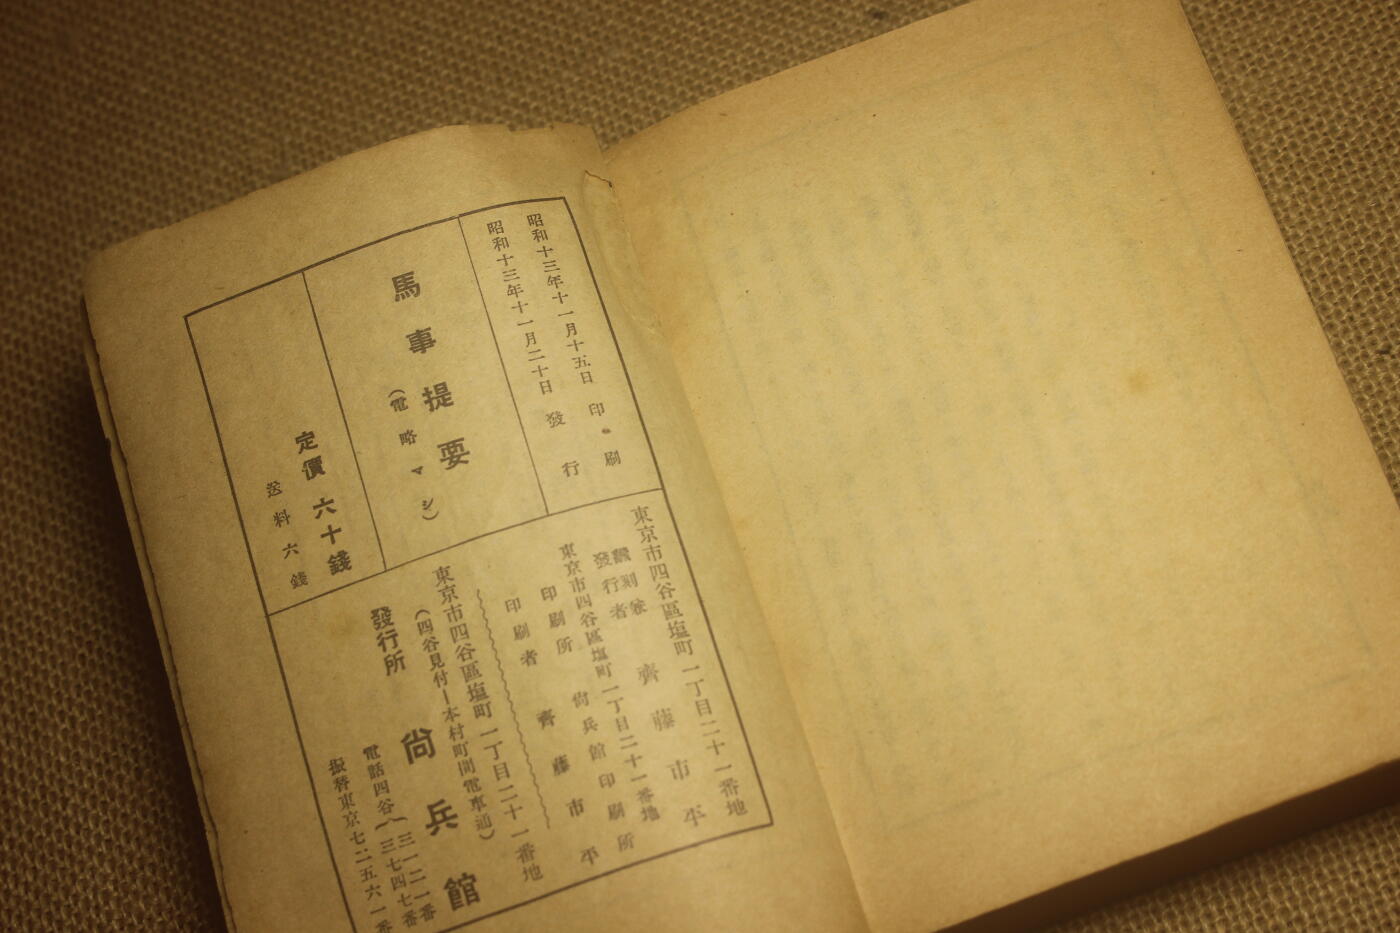 昭和十三年十一月十五日 印刷
昭和十三年十一月二十日 發行
馬事提要
(電略マシ)
定價六十錢
送料六錢
東京市四谷區塩町一丁目二十一番地
發行者 齊藤市平
東京市四谷區塩町一丁目二十一番地
印刷所 尙兵館印刷所
印刷者 齊藤市平
東京市四谷區塩町一丁目二十一番地
(四谷見付ー本村町間電車通)
發行所 尙兵館
電話四谷(三一二一番
(三七四七番
振替東京七二五六一番